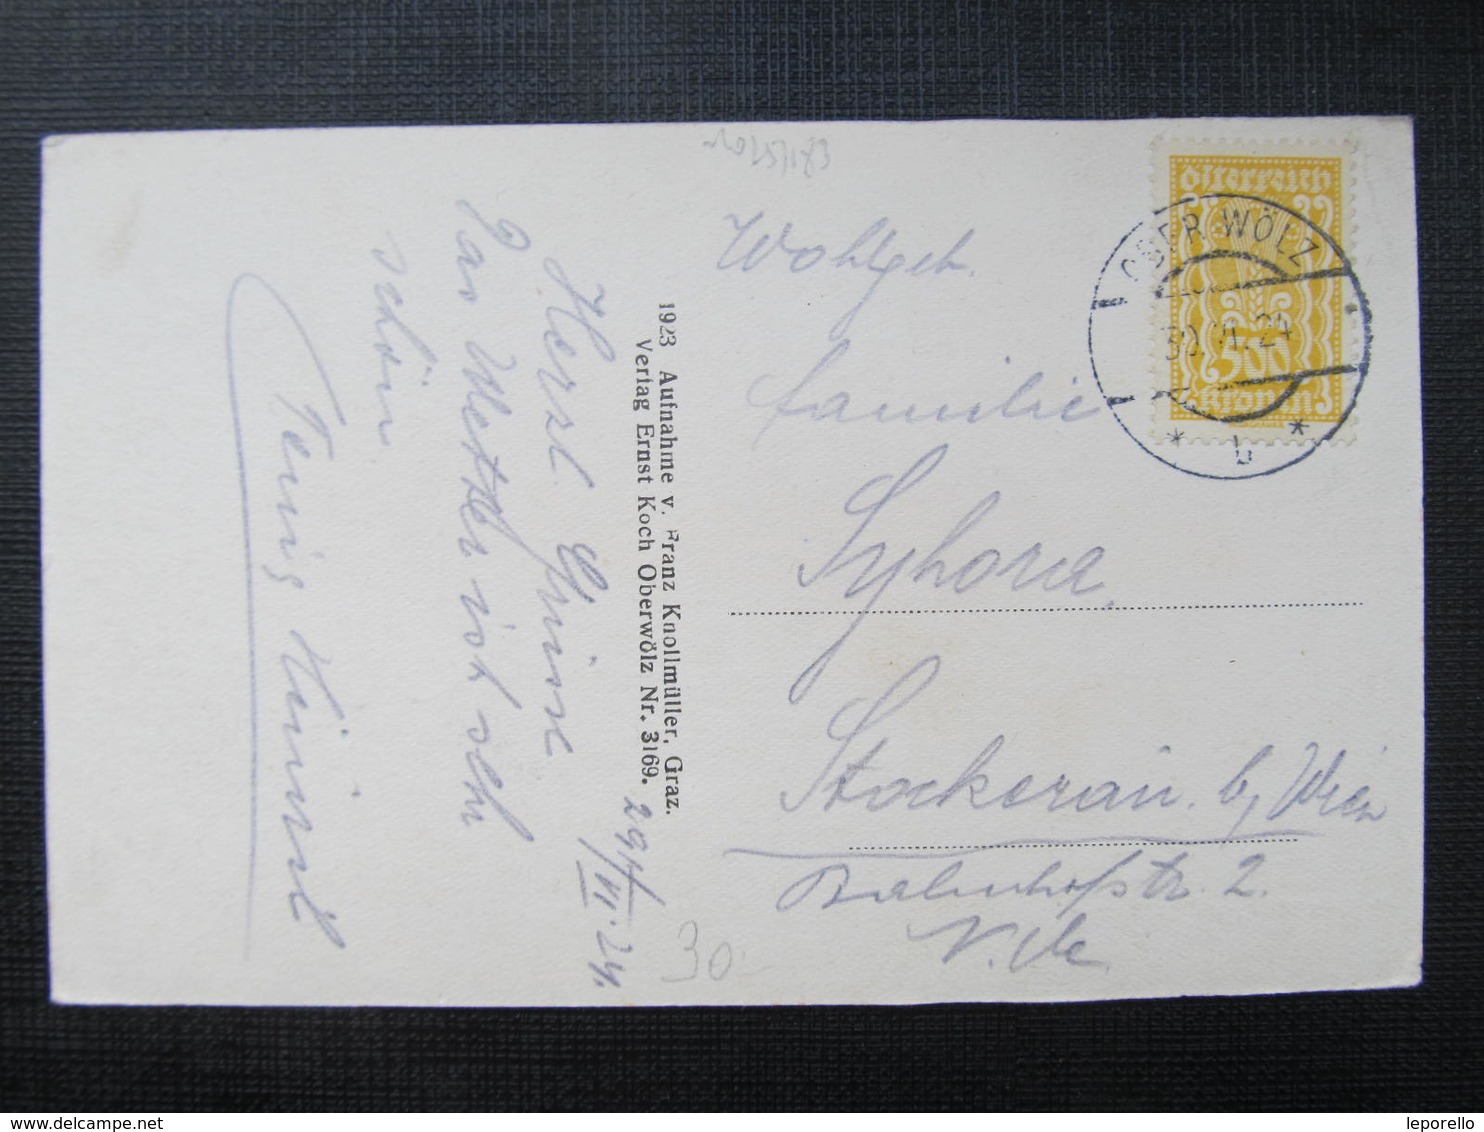 Österreich
500
Kronen
OBER WÖLZ
30. VI. 24
* b *
Wohlgeb.
Familie
Syhora
Stockerau b/ Wien
Bahnhofstr. 2.
N. Oe
1923 Aufnahme v. Franz Knollmüller, Graz.
Verlag Ernst Koch Oberwölz Nr. 3169.
29/VI. 24.
Herzl. Grüsse
Das Wetter ist sehr
schön.
30.-
leporello